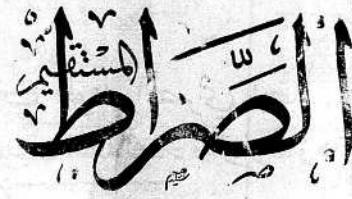 الصِّرَاط
المُسْتَقِيم